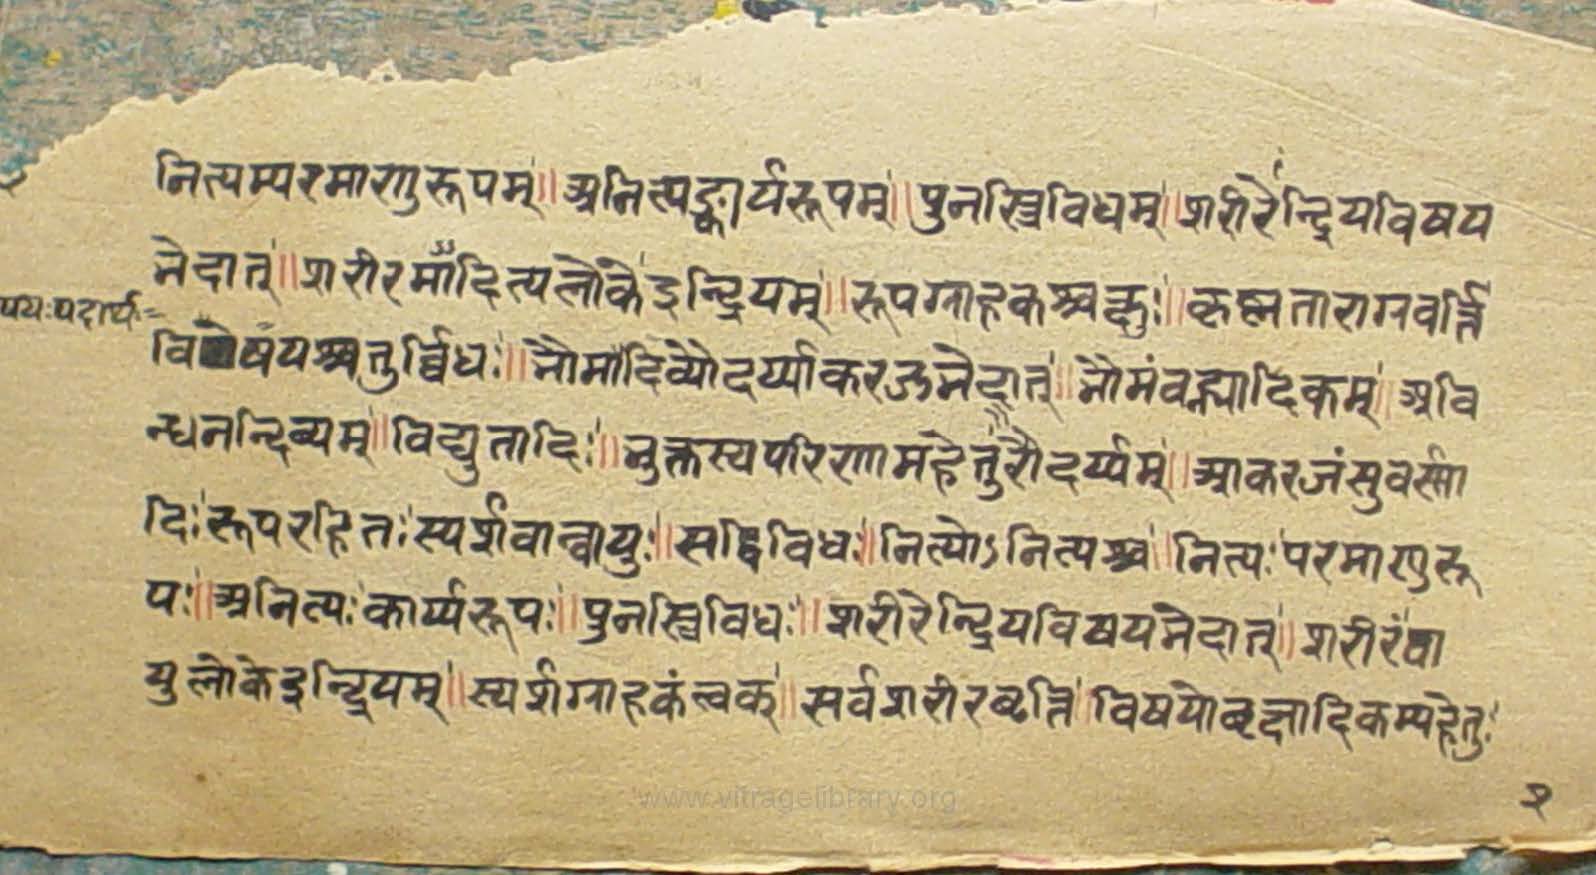 नित्यम्परमाणुरूपम्॥अनित्यङ्कार्यरूपम्॥पुनस्त्रिविधम्॥शरीरेन्द्रियविषय
भेदात्॥शरीरमादित्यलोके इन्द्रियम्॥रूपग्राहकञ्चक्षुः॥कृष्णताराग्रवर्त्ति
विषयश्चतुर्व्विधः॥भौमदिव्योदर्य्याकरजभेदात्॥भौमंवह्न्यादिकम्॥अवि
न्धनन्दिव्यम्॥विद्युतादिः॥भुक्तस्यपरिणामहेतुरौदर्य्यम्॥आकरजंसुवर्णा
दिः॥रूपरहितःस्पर्शवान्वायुः॥सद्विविधः॥नित्योऽनित्यश्च॥नित्यःपरमाणुरू
पः॥अनित्यःकार्य्यरूपः॥पुनस्त्रिविधः॥शरीरेन्द्रियविषयभेदात्॥शरीरंवा
युलोकेइन्द्रियम्॥स्पर्शग्राहकंत्वक्॥सर्वशरीरवृत्ति॥विषयोवृक्षादिकम्पहेतुः
२
www.vitragelibrary.org